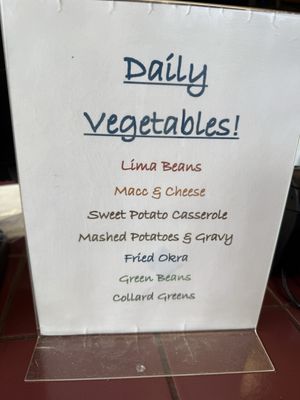 Daily
Vegetables!
Lima Beans
Macc & Cheese
Sweet Potato Casserole
Mashed Potatoes & Gravy
Fried Okra
Green Beans
Collard Greens